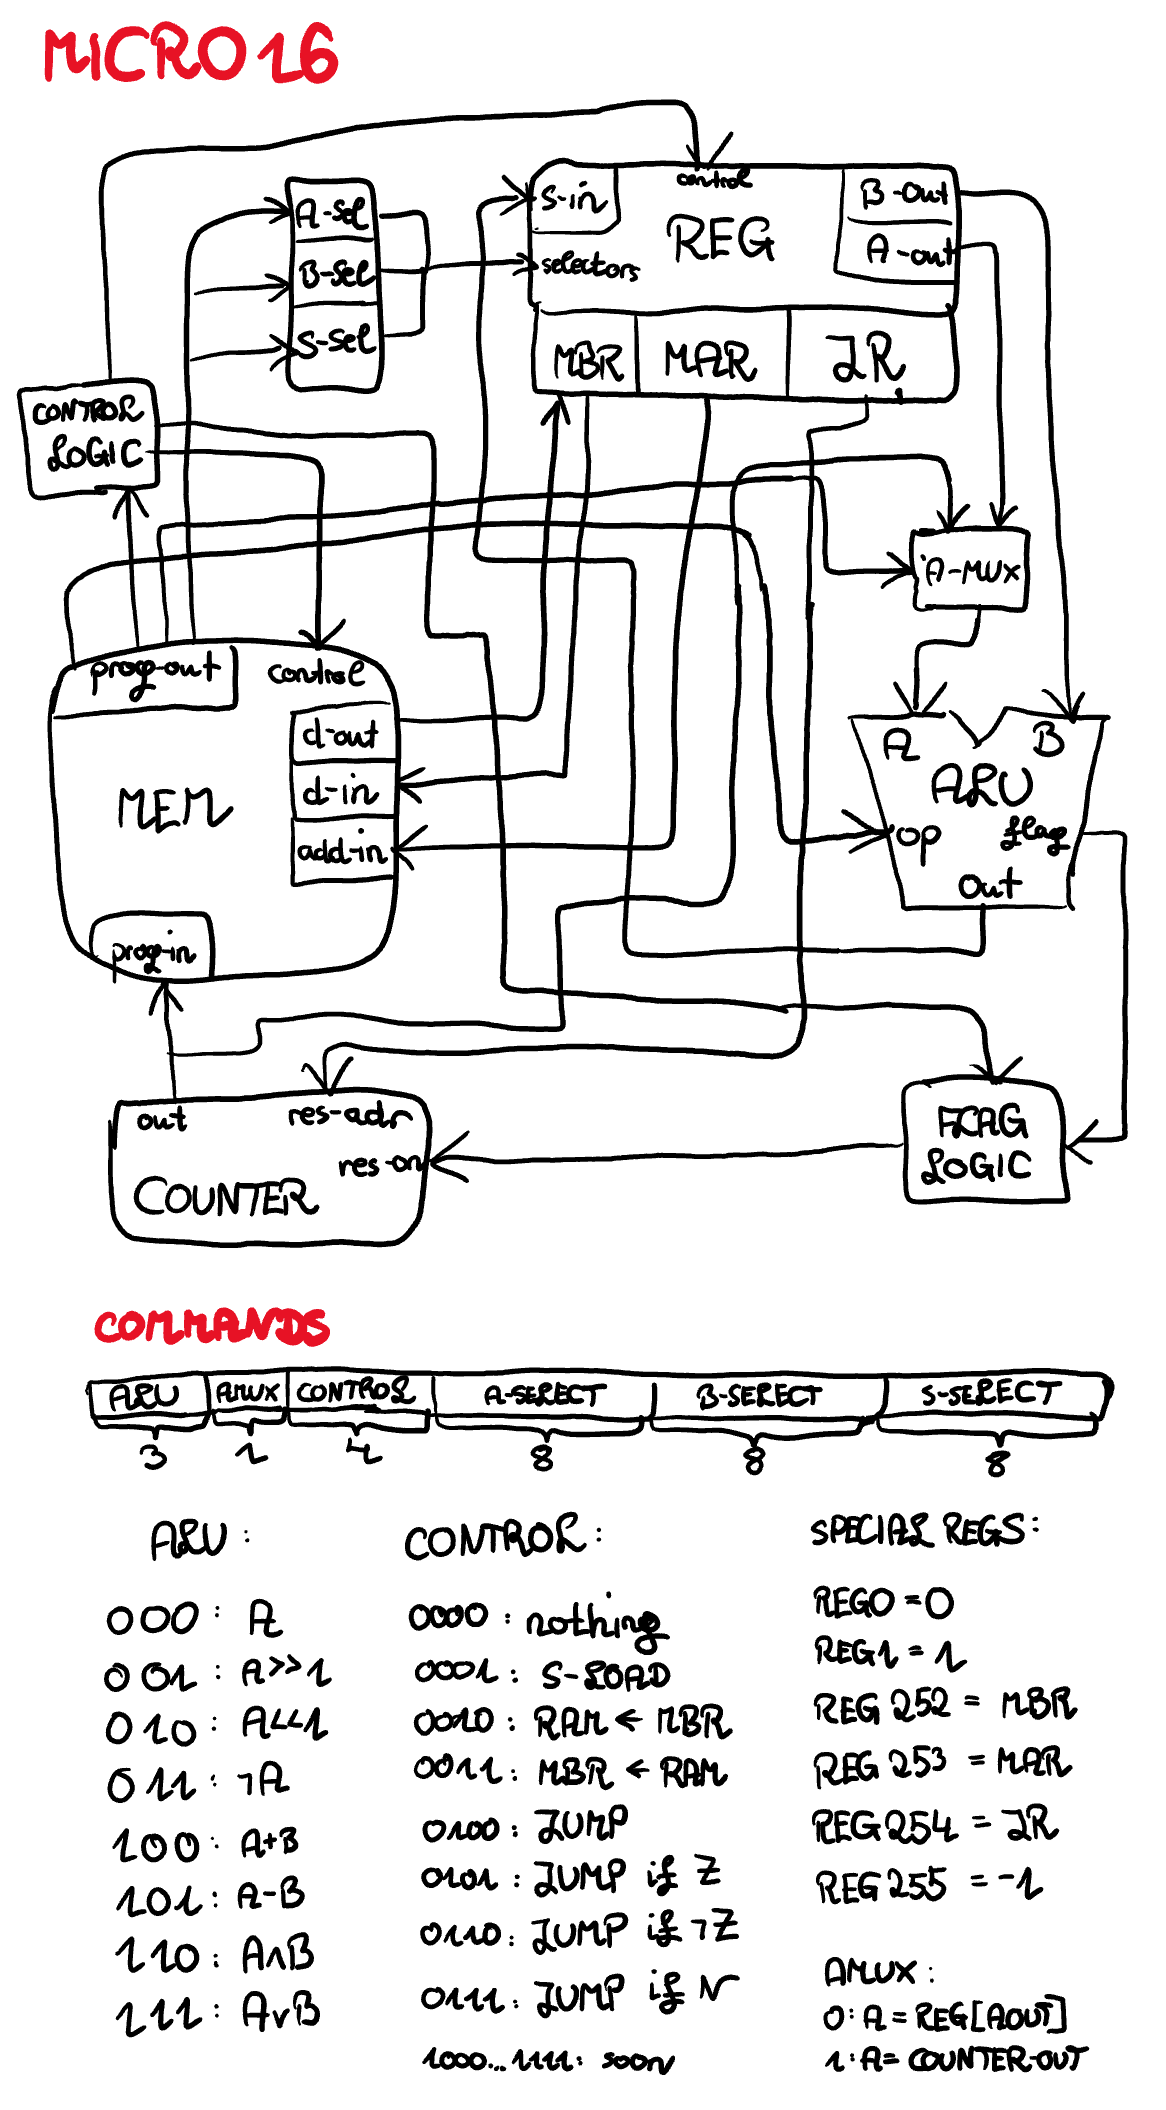 MICRO16
A-sel
B-sel
S-sel
S-in
control
B-out
A-out
REG
selectors
MBR
MAR
JR
CONTROL
LOGIC
A-MUX
prog-out
control
d-out
d-in
add-in
MEM
prog-in
A
B
ALU
op
flag
Out
out
res-adr
res-on
COUNTER
FLAG
LOGIC
COMMANDS
ALU AMUX CONTROL A-SELECT B-SELECT S-SELECT
3 1 4 8 8 8
ALU:
000: A
001: A>>1
010: A<<1
011: ¬A
100: A+B
101: A-B
110: A∧B
111: A∨B
CONTROL:
0000: nothing
0001: S-LOAD
0010: RAM ← MBR
0011: MBR ← RAM
0100: JUMP
0101: JUMP if Z
0110: JUMP if ¬Z
0111: JUMP if N
1000...1111: soon
SPECIAL REGS:
REG0 = 0
REG1 = 1
REG252 = MBR
REG253 = MAR
REG254 = JR
REG255 = -1
AMUX:
0: A = REG[AOUT]
1: A = COUNTER-OUT